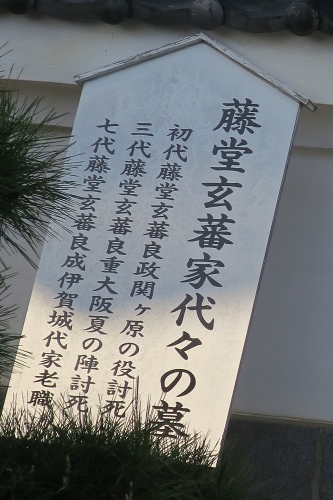 藤堂玄蕃家代々の墓
初代藤堂玄蕃良政関ヶ原の役討死
三代藤堂玄蕃良重大阪夏の陣討死
七代藤堂玄蕃良成伊賀城代家老職